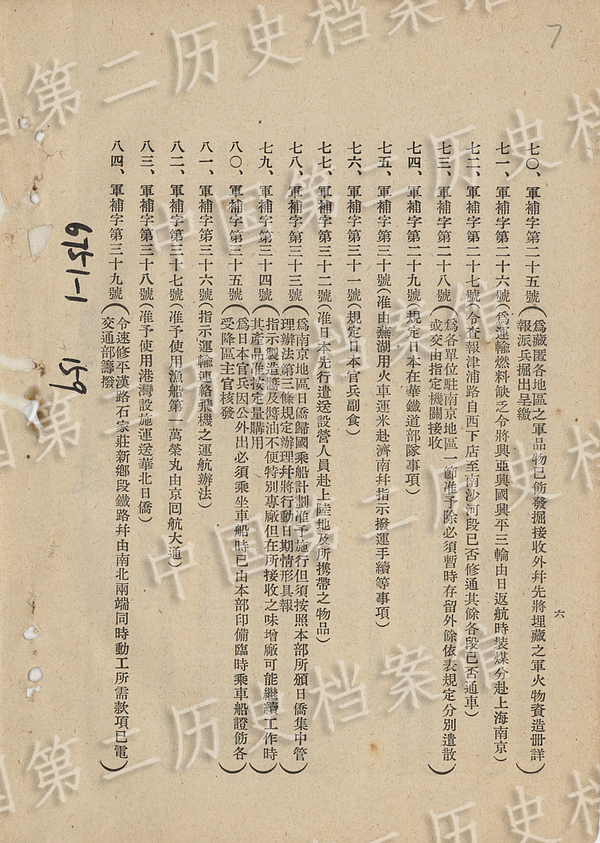 7
六
七〇、軍補字第二十五號(爲藏匿各地區之軍品物已飭發掘接收外幷先將埋藏之軍火物資造册詳
報派兵掘出呈繳)
七一、軍補字第二十六號(爲運輸燃料缺乏令將興亞興國興平三輪由日返航時裝煤分赴上海南京)
七二、軍補字第二十七號(令查報津浦路自西下店至南沙河段已否修通其餘各段已否通車)
七三、軍補字第二十八號(爲各單位駐南京地區一節准予除必須暫時存留外餘依表規定分別遣散
或交由指定機關接收)
七四、軍補字第二十九號(規定日本在華鐵道部隊事項)
七五、軍補字第三十號(准由蕪湖用火車運米赴濟南幷指示撥運手續等事項)
七六、軍補字第三十一號(規定日本官兵副食)
七七、軍補字第三十二號(准日本先行遣送設營人員赴上陸地及所携帶之物品)
七八、軍補字第三十三號(爲南京地區日僑歸國乘船計劃准予施行但須按照本部所頒日僑集中管
理辦法第三條規定辦理幷將行動日期情形具報)
七九、軍補字第三十四號(指示製造醬及將油不便特別專廠但在所接收之味增廠可能繼續工作時
其產品准按定量購用)
八〇、軍補字第三十五號(爲日本官兵因公外出必須乘坐車船時已由本部印備臨時乘車船證飭各
受降區主官核發)
八一、軍補字第三十六號(指示運輸連絡飛機之運航辦法)
八二、軍補字第三十七號(准予使用漁船第一萬榮丸由京回航大通)
八三、軍補字第三十八號(准予使用港灣設施運送華北日僑)
八四、軍補字第三十九號(令速修平漢路石家莊新鄉段鐵路幷由南北兩端同時動工所需款項已電
交通部籌撥)
159
中国第二历史档案馆